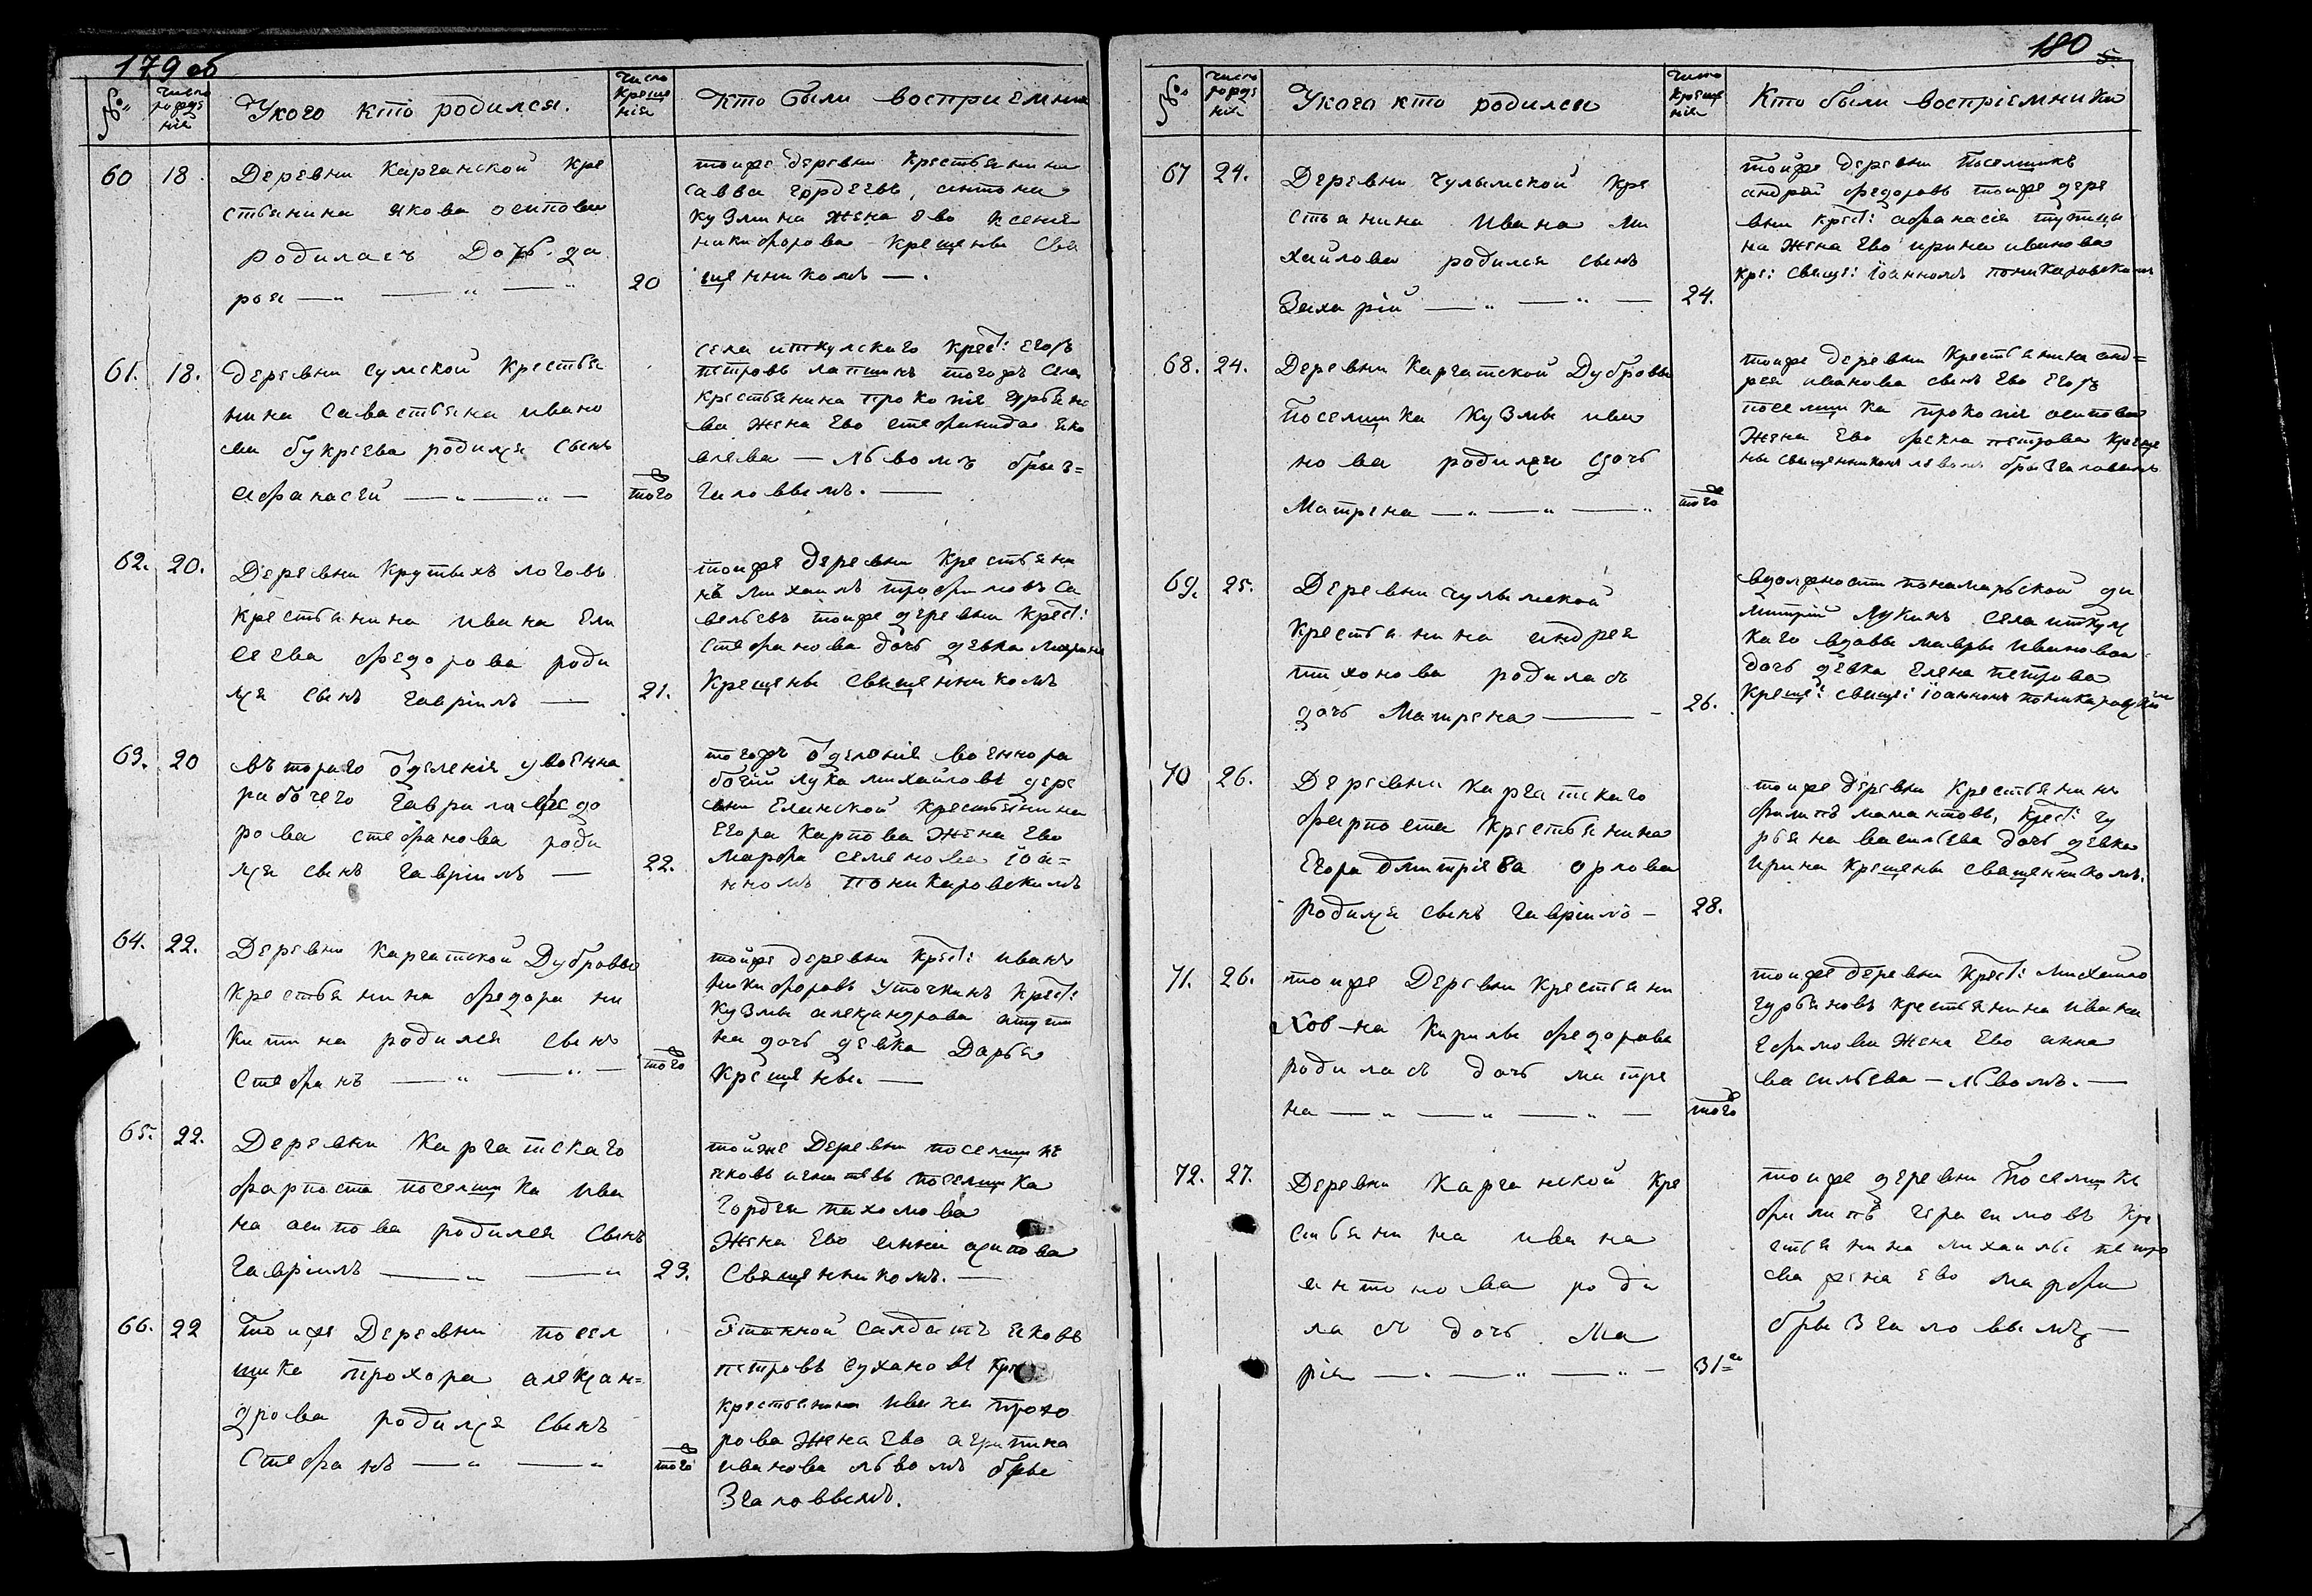 179 об
№
Число рожде нія
Укого кто родился.
Число Креще нія
Кто были воспріемники
60
18
Деревни Карганской кре
стьянина якова осипова
родиласъ Дочь да
рья
20
тойже деревни Крестьянинъ
савва гордеевъ, антона
кузмина жена ево ксенія
никифорова крещены Свя
щенникомъ —.
61.
18.
деревни сумской крестья
нина савастьяна ивано
ва букреева родился сынъ
афанасей
того
села иткулскаго крест: егоръ
петровъ лапшинъ тогожъ села
крестьянина прокопія гурьяно
ва жена ево стефанида яко
влева — львомъ брыз=
галовымъ.
62.
20.
Деревни Крутыхъ логовъ
крестьянина ивана ели
сеева федорова роди
лся сынъ гавріилъ —
21.
тойже деревни крестьяни
нъ михаилъ трофимовъ са
вельевъ тойже деревни крест:
стефанова дочь девка марина
Крещены священникомъ
63.
20
въторого отделенія увоенна
рабочего гаврила федо
рова стефанова роди
лся сынъ гавріилъ —
22.
тогожъ отделенія военнора
бочій лука михайловъ дере
вни Еланской крестьянина
Егора Карпова жена Ево
марфа семенова іоа=
нномъ поникаровскимъ
64.
22.
Деревни Каргатской Дубровы
крестьянина федора ни
китина родился сынъ
Стефанъ
того
тойже деревни крест: иванъ
никифоровъ уточкинъ крест:
кузмы александрова
на дочь девка Дарья
Крещены. —
65.
22.
Деревни Каргатскаго
фарпоста поселщика ива
на осипова родился сынъ
гавріилъ
23.
тойже Деревни поселщикъ
яковъ игнатевъ поселщика
гордея пахомова
жена ево анна осипова
Священникомъ. —
66.
22
тойже Деревни посел
щика прохора алексан=
дрова родился сынъ
Стефанъ
того
Этапной салдатъ яковъ
петровъ сухановъ
крестьянина ивана прохо
рова жена ево агрипина
иванова львомъ бры
згаловымъ.
180
5
№
Число рожде нія
Укого кто родился
Число Креще нія
Кто были воспріемники
67
24.
Деревни чулымской кре
стьянина ивана ми
хайлова родился сынъ
Захарій
24.
тойже деревни Поселщикъ
андрей федоровъ тойже дере
вни крест: афанасія тупицы
на жена Ево ирина иванова
кре: свяще: іоанномъ поникаровскимъ
68.
24.
Деревни Каргатской Дубровы
Поселщика кузмы ива
нова родился дочь
Матрена
того
тойже деревни крестьянина анд=
рея иванова сынъ Ево Егоръ
поселщика прокопія осипова
жена Ево фекла петрова креще
ны священникомъ львомъ брызгаловымъ
69.
25.
Деревни чулымской
крестьянина андрея
тихонова родиласъ
дочь Матрена
26.
вдолжности пономарьской ди
митрій Лукинъ села иткулс
каго вдовы мавры ивановой
дочь девка Елена петрова
креще: свяще: іоанномъ поникаровскимъ
70
26.
Деревни каргатскаго
фарпоста крестьянина
Егора дмитріева орлова
родился сынъ гавріилъ —
28.
тойже деревни крестьянинъ
филипъ мамантовъ, крест: гу
рьяна васильева дочь девка
ирина крещены священникомъ.
71.
26.
тойже Деревни крестьяни
на Кирилы федорова
родиласъ дочь матре
на
того
тойже деревни крест: михайло
гурьяновъ крестьянина ивана
ефимова жена Ево анна
васильева — львомъ. —
72.
27.
Деревни карганской кре
стьянина ивана
антонова роди
ласъ дочь Ма
рія
31го
тойже деревни Поселщикъ
филипъ герасимовъ кре
стьянина михаилы петро
ва жена ево марфа
брызгаловымъ —